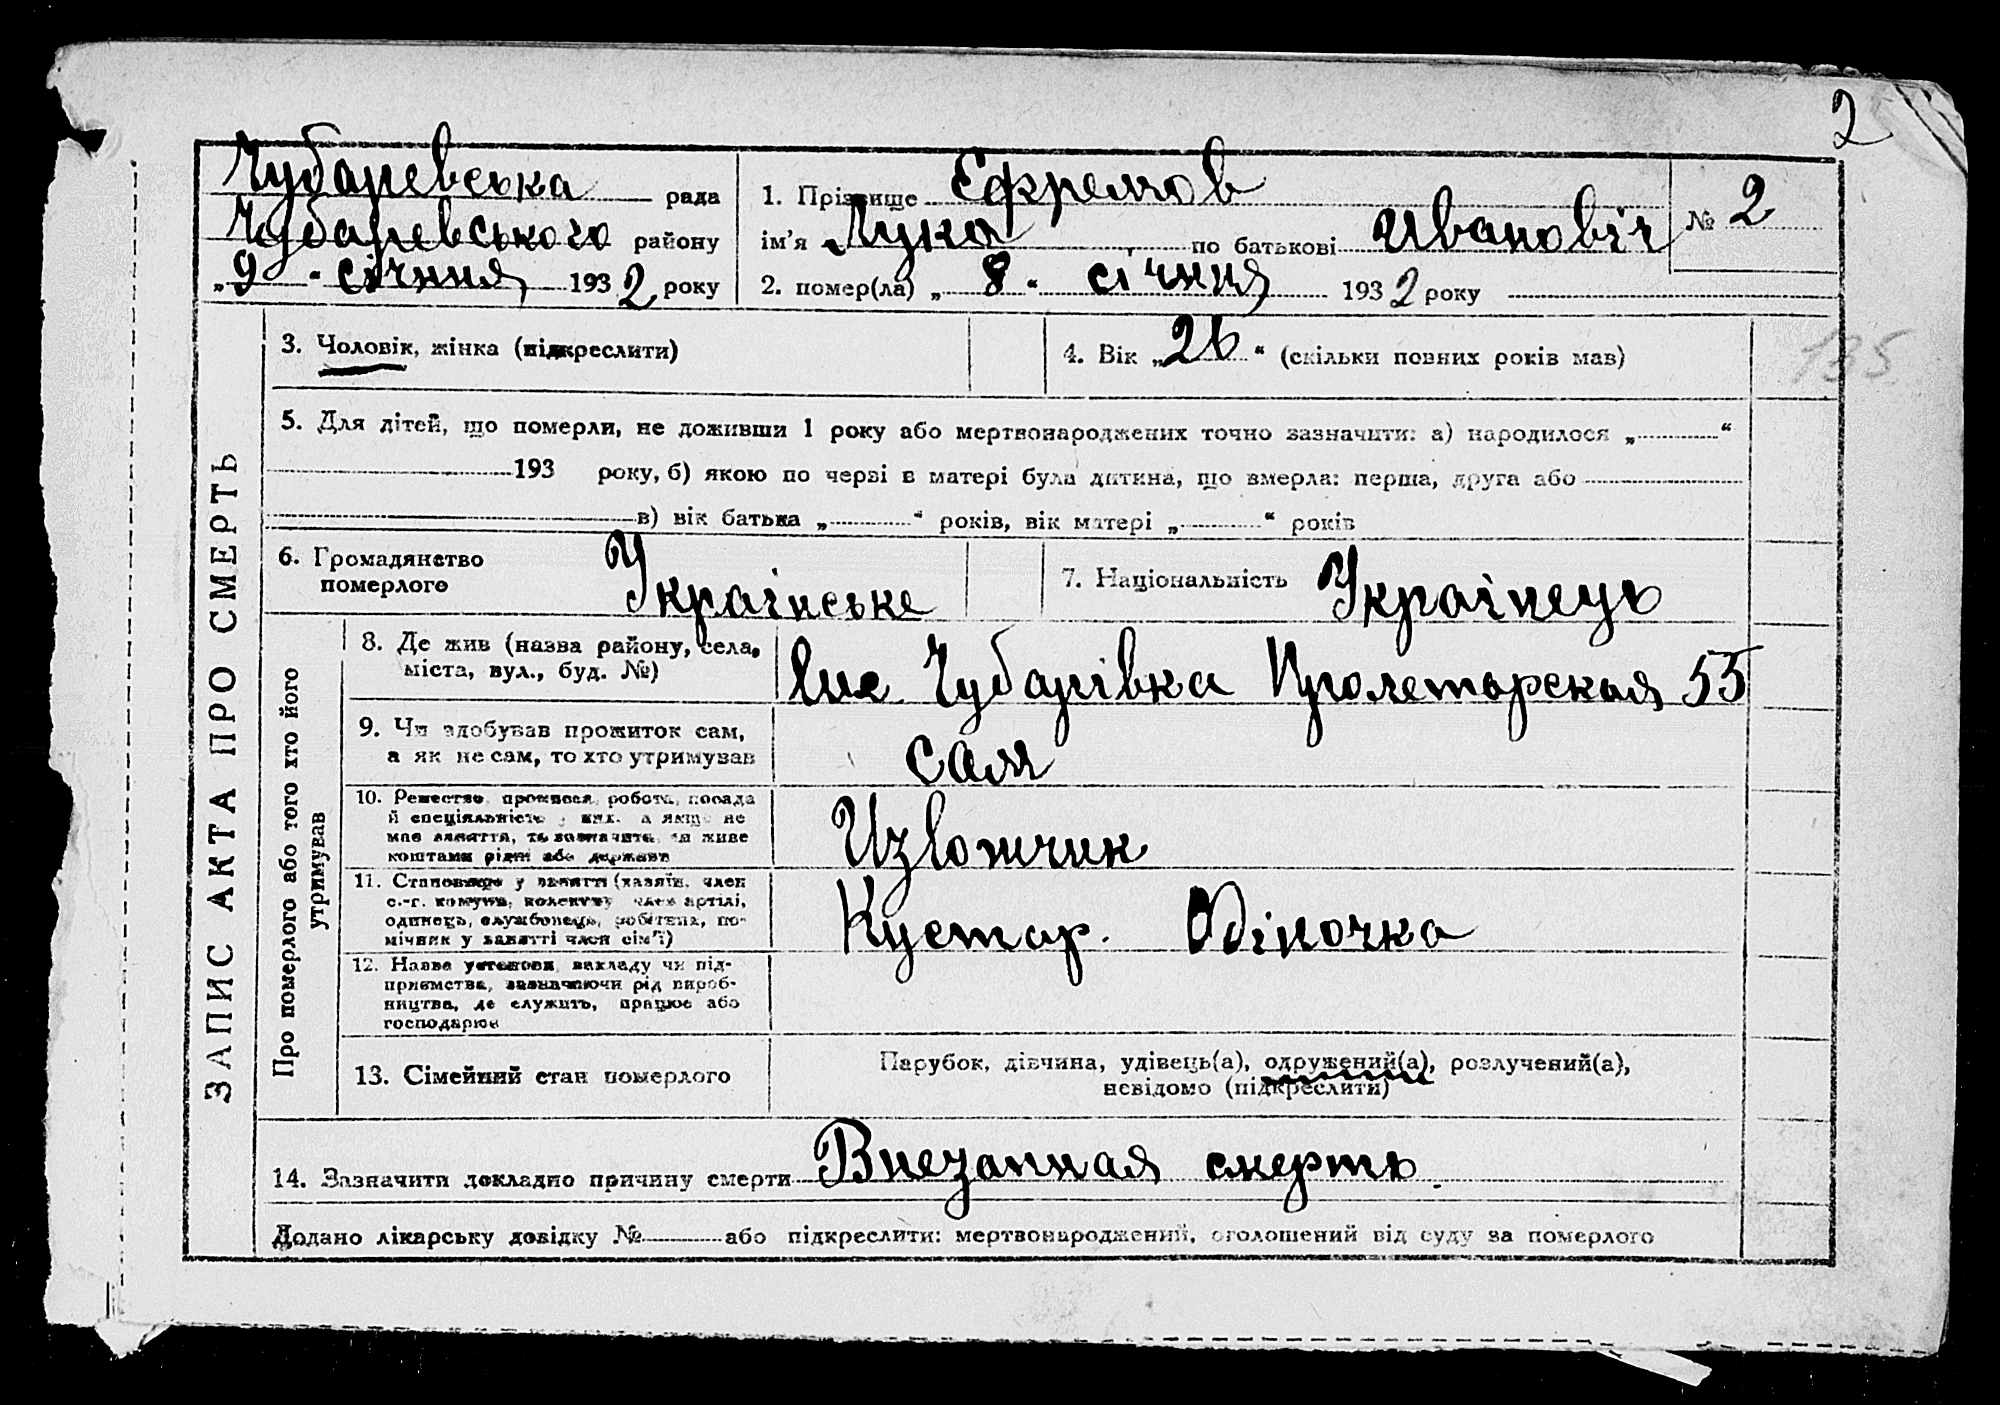 2
Чубаревська рада
Чубаревського району
„9" січння 1932 року
1. Прізвище Єфремов
ім'я Лука по батькові Ивановіч
№ 2
2. помер(ла) „8" січння 1932 року
ЗАПИС АКТА ПРО СМЕРТЬ
3. Чоловік, жінка (підкреслити)
4. Вік „26" (скільки повних років мав)
135
5. Для дітей, що померли, не доживши 1 року або мертвонароджених точно зазначити: а) народилося „ "
193 року, б) якою по черзі в матері була дитина, що вмерла: перша, друга або
в) вік батька „ " років, вік матері „ " років
6. Громадянство
померлого
Українське
7. Національність Українець
Про померлого або того хто його
утримував
8. Де жив (назва району, села,
міста, вул., буд. №)
Чубарівка Пролетарская 55
9. Чи здобував прожиток сам,
а як не сам, то хто утримував
сам
10. Ремество, промисел, робота, посада
й спеціяльність у них, а якщо не
мав заняття, то зазначити, чи живе
коштами рідні або держави
Извотчик
11. Становище у занятті (хазяїн, член
с.-г. комуни, колективу, член артілі,
одинець, службовець, робітник, по-
мічник у занятті член сім'ї)
Кустар. Одіночка
12. Назва установи, закладу чи під-
приємства, зазначаючи рід вироб-
ництва, де служить, працює або
господарює
13. Сімейний стан померлого
Парубок, дівчина, удівець(а), одружений(а), розлучений(а),
невідомо (підкреслити)
14. Зазначити докладно причину смерти Внезапная смерть.
Додано лікарську довідку № або підкреслити: мертвонароджений, оголошений від суду за померлого